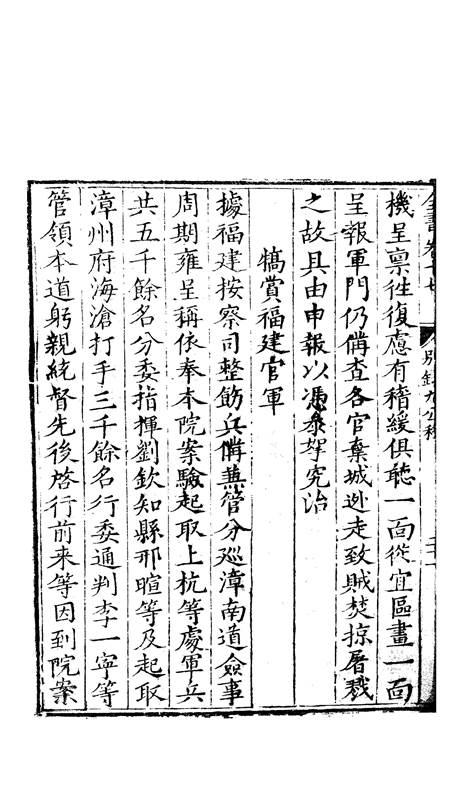 機呈禀往復慮有稽緩俱聴一面從宜區畫一面
呈報軍門仍備查各官棄城逊走致賊焚掠屠戮
之故具由申報以憑叅拏究治
犒賞福建官軍
據福建按察司整飭兵備蒹管分廵漳南道僉事
周期雍呈稱依奉本院案驗起取上杭等處軍兵
共五千餘名分委指揮劉欽知縣邢暄等及起取
漳州府海滄打手三千餘名行委通判李一寧等
管領本道躬親統督先後啓行前来等因到院案